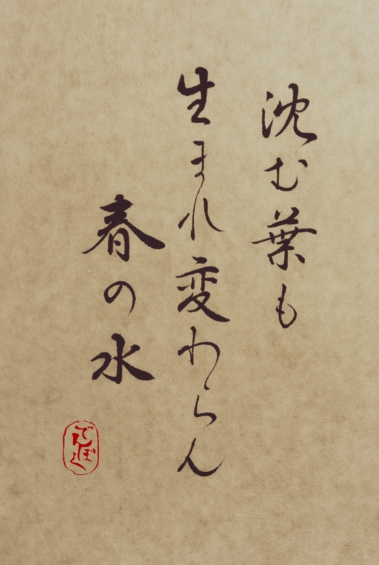 沈む葉も
生まれ変わらん
春の水